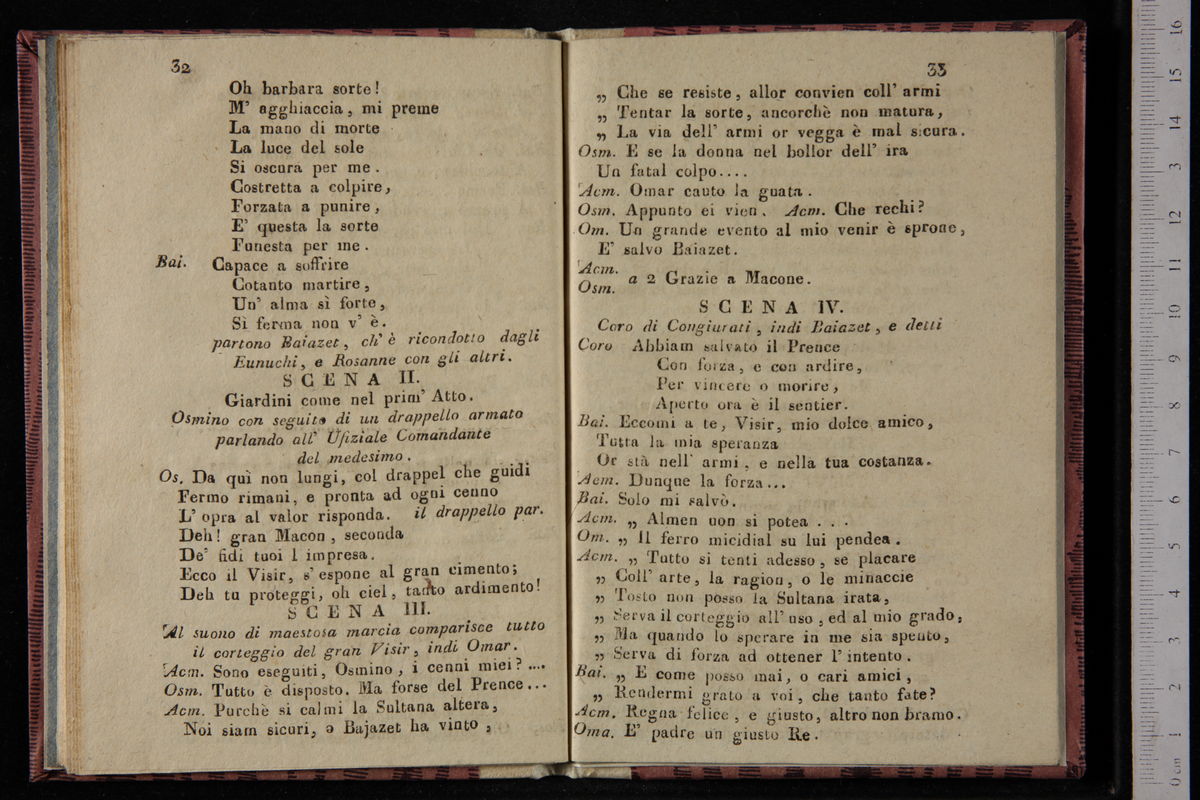 32
Oh barbara sorte!
M' agghiaccia, mi preme
La mano di morte
La luce del sole
Si oscura per me.
Costretta a colpire,
Forzata a punire,
E' questa la sorte
Funesta per me.
Bai. Capace a soffrire
Cotanto martire,
Un' alma sì forte,
Sì ferma non v' è.
partono Baiazet, ch' è ricondotto dagli
Eunuchi, e Rosanne con gli altri.
SCENA II.
Giardini come nel prim' Atto.
Osmino con seguito di un drappello armato
parlando all' Ufiziale Comandante
del medesimo.
Os. Da quì non lungi, col drappel che guidi
Fermo rimani, e pronta ad ogni cenno
L' opra al valor risponda. il drappello par.
Deh! gran Macon, seconda
De' fidi tuoi l impresa.
Ecco il Visir, s' espone al gran cimento;
Deh tu proteggi, oh ciel, tanto ardimento!
SCENA III.
Al suono di maestosa marcia comparisce tutto
il corteggio del gran Visir, indi Omar.
Acm. Sono eseguiti, Osmino, i cenni miei? ....
Osm. Tutto è disposto. Ma forse del Prence...
Acm. Purchè si calmi la Sultana altera,
Noi siam sicuri, o Bajazet ha vinto,
33
„ Che se resiste, allor convien coll' armi
„ Tentar la sorte, ancorchè non matura,
„ La via dell' armi or vegga è mal sicura.
Osm. E se la donna nel bollor dell' ira
Un fatal colpo....
Acm. Omar cauto la guata.
Osm. Appunto ei vien. Acm. Che rechi?
Om. Un grande evento al mio venir è sprone,
E' salvo Baiazet.
Acm.
Osm. a 2 Grazie a Macone.
SCENA IV.
Coro di Congiurati, indi Baiazet, e detti
Coro Abbiam salvato il Prence
Con forza, e con ardire,
Per vincere o morire,
Aperto ora è il sentier.
Bai. Eccomi a te, Visir, mio dolce amico,
Tutta la mia speranza
Or stà nell' armi, e nella tua costanza.
Acm. Dunque la forza...
Bai. Solo mi salvò.
Acm. „ Almen non si potea ...
Om. „ Il ferro micidial su lui pendea.
Acm. „ Tutto si tenti adesso, se placare
„ Coll' arte, la ragion, o le minaccie
„ Tosto non posso la Sultana irata,
„ Serva il corteggio all' uso, ed al mio grado,
„ Ma quando lo sperare in me sia spento,
„ Serva di forza ad ottener l' intento.
Bai. „ E come posso mai, o cari amici,
„ Rendermi grato a voi, che tanto fate?
Acm. Regna felice, e giusto, altro non bramo.
Oma. E' padre un giusto Re.
0 cm 1 2 3 4 5 6 7 8 9 10 11 12 13 14 15 16